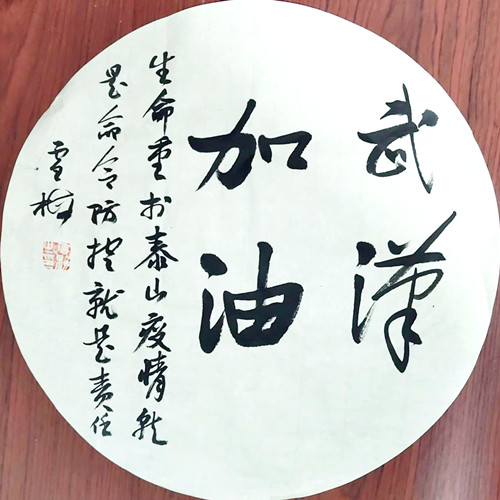 武漢
加油
生命重於泰山疫情就
是命令防控就是责任